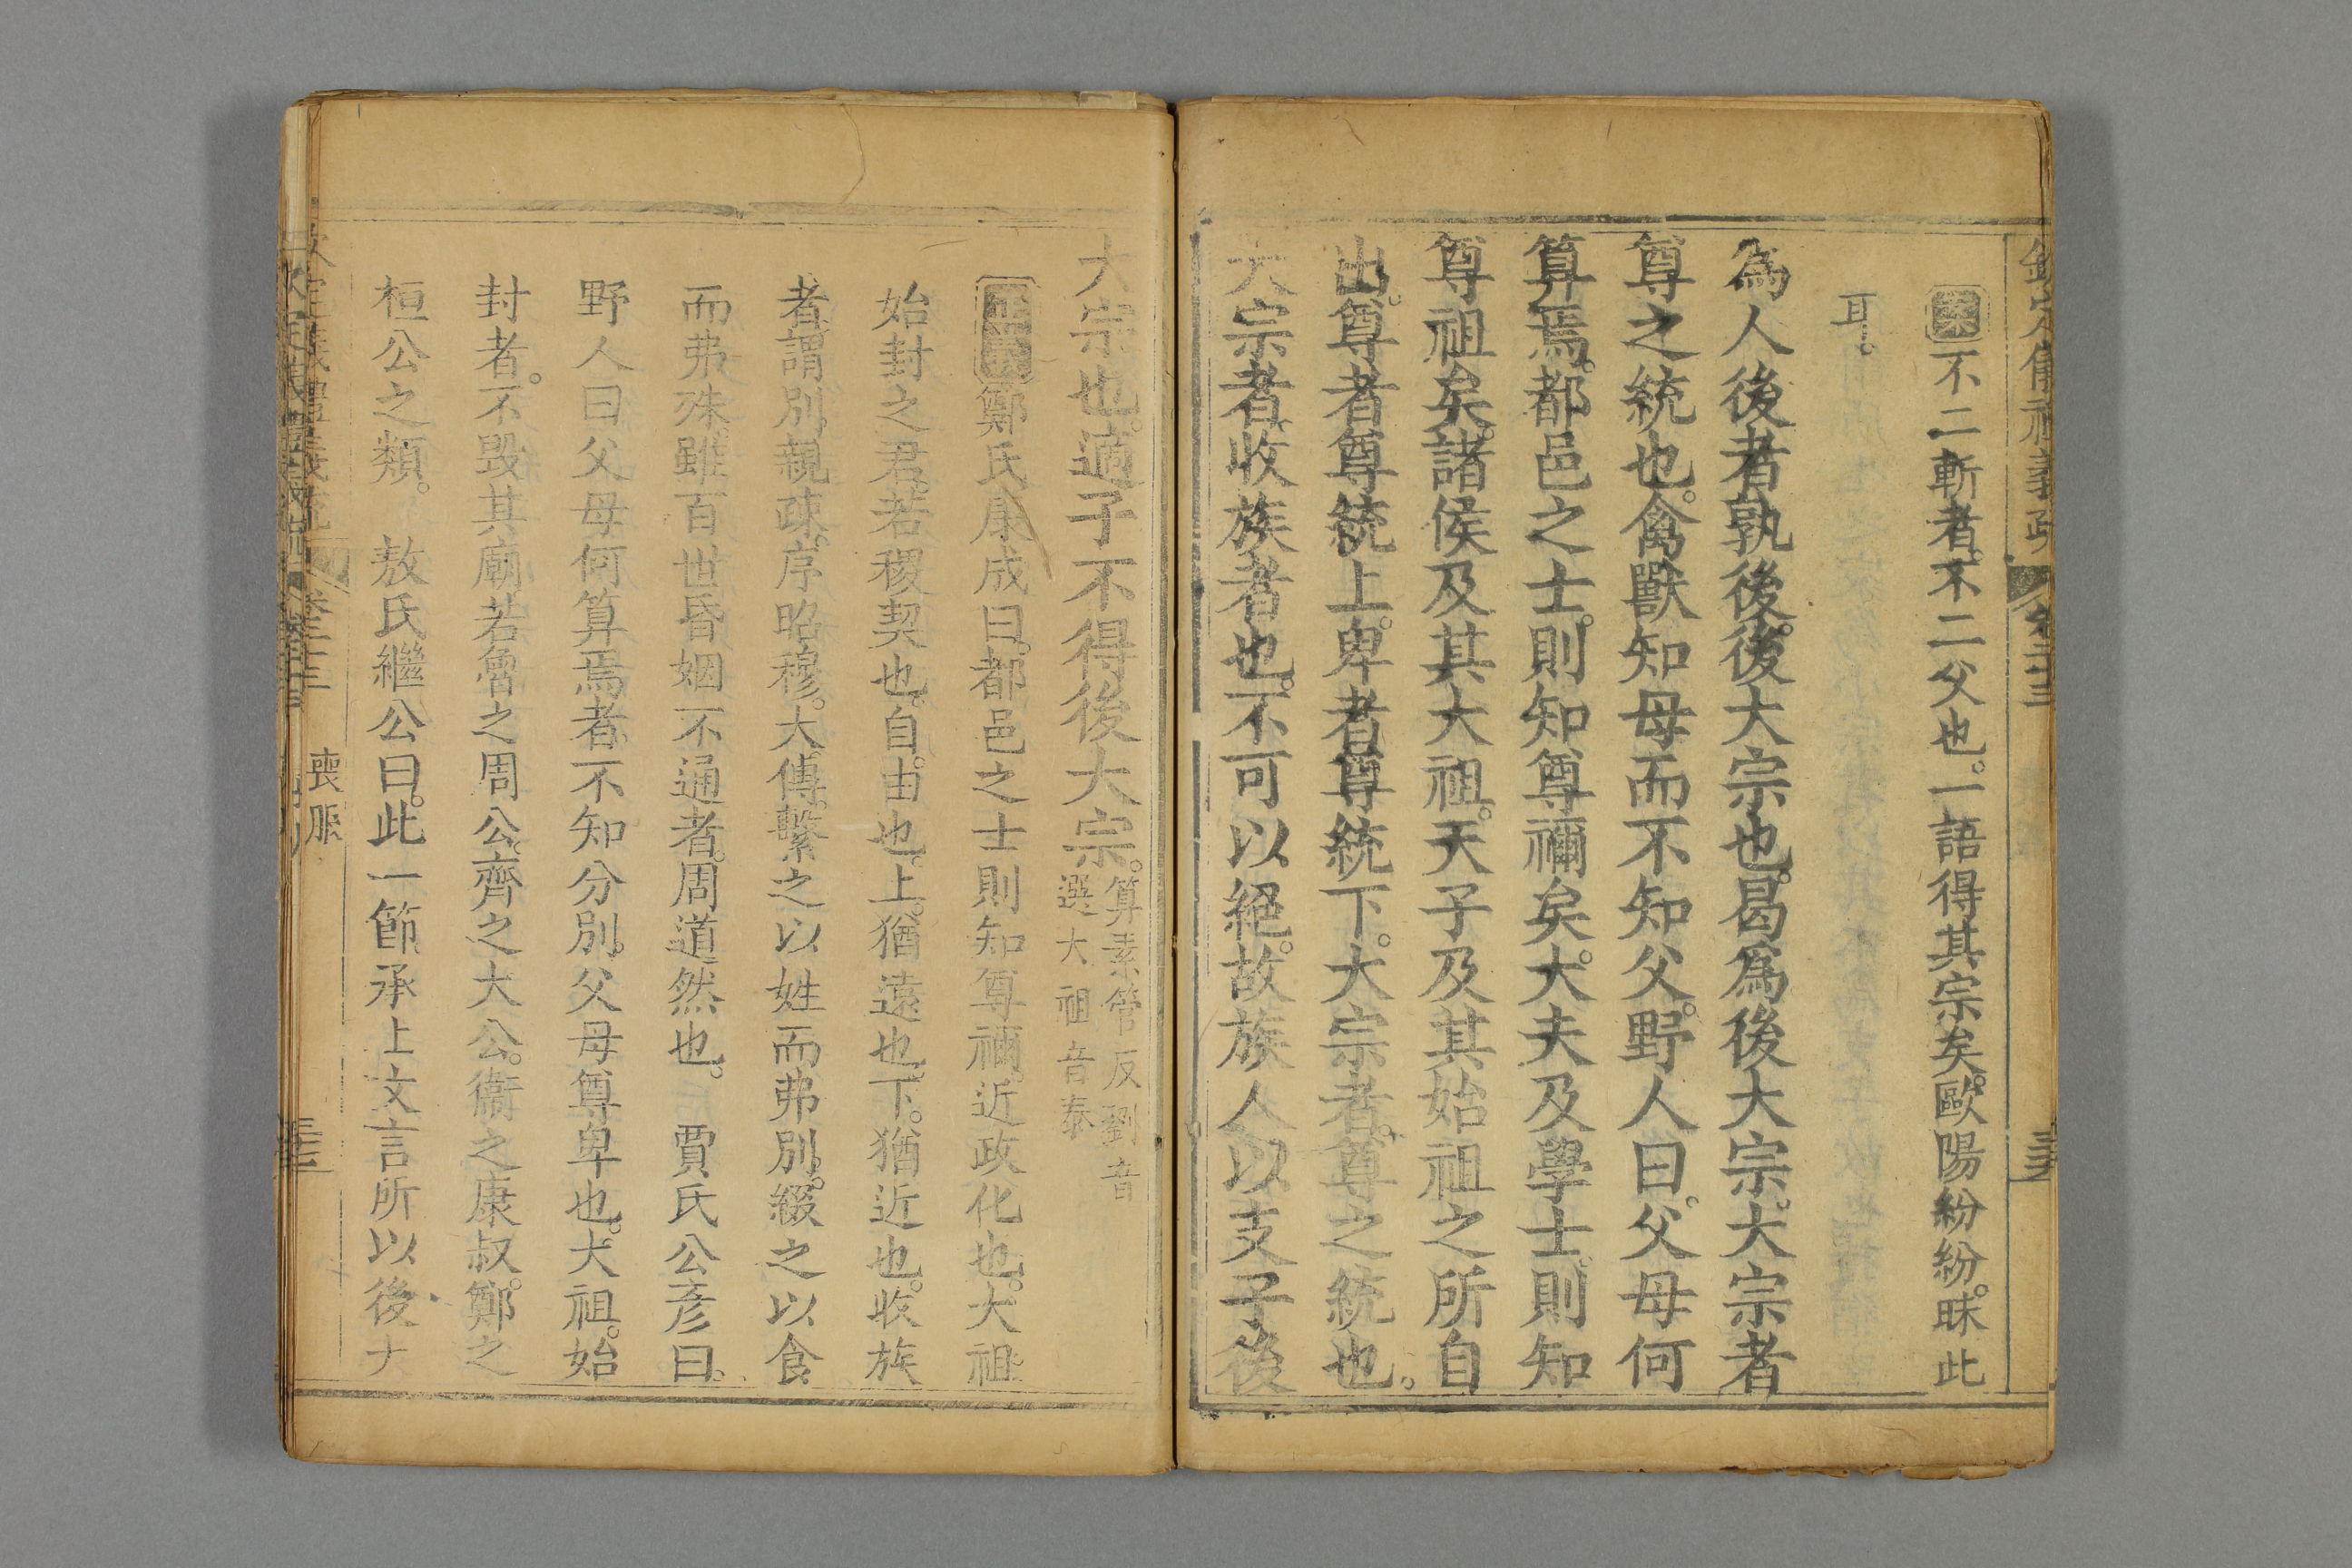 欽定儀禮義疏 卷二十三
案不二斬者。不二父也。一語得其宗矣。歐陽紛紛。昧此
耳。
為人後者孰後。後大宗也。曷爲後大宗。大宗者
尊之統也。禽獸知母而不知父。野人曰。父母何
算焉。都邑之士。則知尊禰矣。大夫及學士。則知
尊祖矣。諸侯及其大祖。天子及其始祖之所自
出。尊者尊統上。卑者尊統下。大宗者。尊之統也。
大宗者。收族者也。不可以絕。故族人以支子後
大宗也。適子不得後大宗。算素管反劉音
選大祖音泰
正義鄭氏康成曰。都邑之士則知尊禰。近政化也。大祖。
始封之君。若稷契也。自。由也。上。猶遠也。下。猶近也。收族
者。謂別親疎。序昭穆。大傳。繫之以姓而弗別。綴之以食
而弗殊。雖百世昏姻不通者。周道然也。 賈氏公彥曰。
野人曰父母何算焉者。不知分別父母尊卑也。大祖。始
封者。不毀其廟。若魯之周公。齊之大公。衞之康叔。鄭之
桓公之類。 敖氏繼公曰。此一節承上文言所以後
喪服